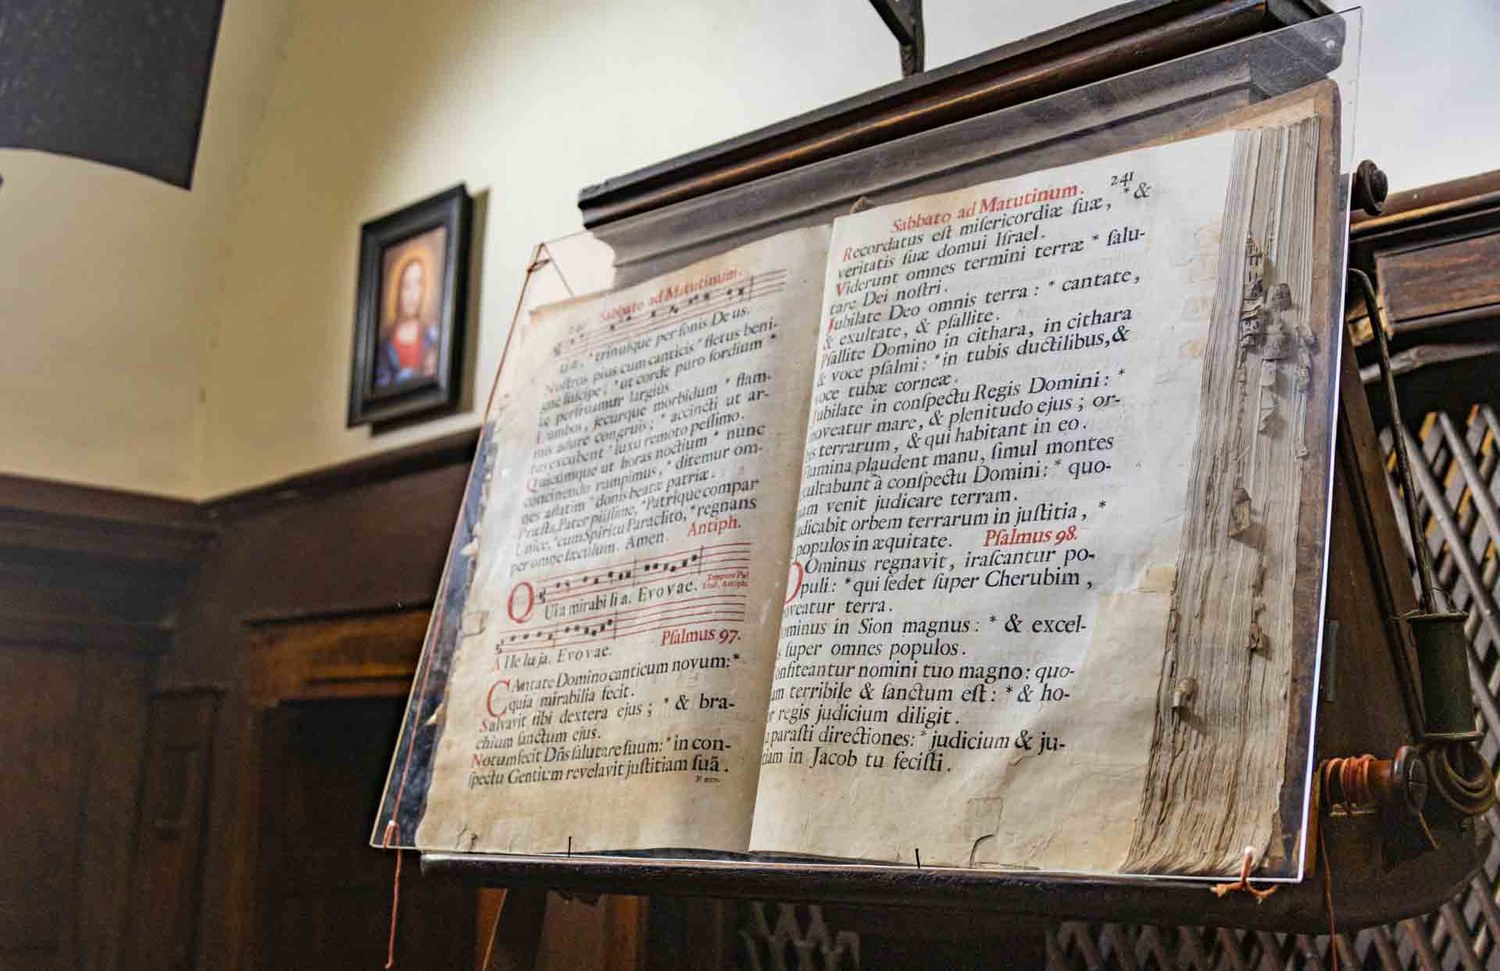 Sabbato ad Matutinum.
240
trinusque personis Deus.
Nostros pius cum canticis * fletus beni-
gne suscipe; * ut corde puro sordium *
te perfruamur largiùs.
Lumbos, jecurque morbidum * flam-
mis adure congruis; * accincti ut ar-
tus excubent * luxu remoto pessimo.
Quicumque ut horas noctium * nunc
concinendo rumpimus, * ditemur om-
nes affatim * donis beatæ patriæ.
Præsta, Pater piissime, * Patrique compar
Unice, * cum Spiritu Paraclito, * regnans
per omne sæculum. Amen. Antiph.
Quia mirabilia. Evovae.
Alleluja. Evovae. Psalmus 97.
CAntate Domino canticum novum: *
quia mirabilia fecit.
Salvavit sibi dextera ejus; * & bra-
chium sanctum ejus.
Notum fecit Dñs salutare suum: * in con-
spectu Gentium revelavit justitiam suã.
Sabbato ad Matutinum. 241
Recordatus est misericordiæ suæ, * &
veritatis suæ domui Israel.
Viderunt omnes termini terræ * salu-
tare Dei nostri.
Jubilate Deo omnis terra: * cantate,
& exultate, & psallite.
Psallite Domino in cithara, in cithara
& voce psalmi: * in tubis ductilibus, &
voce tubæ corneæ.
ubilate in conspectu Regis Domini: *
moveatur mare, & plenitudo ejus; or-
bis terrarum, & qui habitant in eo.
lumina plaudent manu, simul montes
xultabunt à conspectu Domini: * quo-
iam venit judicare terram.
udicabit orbem terrarum in justitia, *
populos in æquitate. Psalmus 98.
DOminus regnavit, irascantur po-
puli: * qui sedet super Cherubim,
moveatur terra.
ominus in Sion magnus: * & excel-
s super omnes populos.
onfiteantur nomini tuo magno: quo-
iam terribile & sanctum est: * & ho-
r regis judicium diligit.
u parasti directiones: * judicium & ju-
tiam in Jacob tu fecisti.